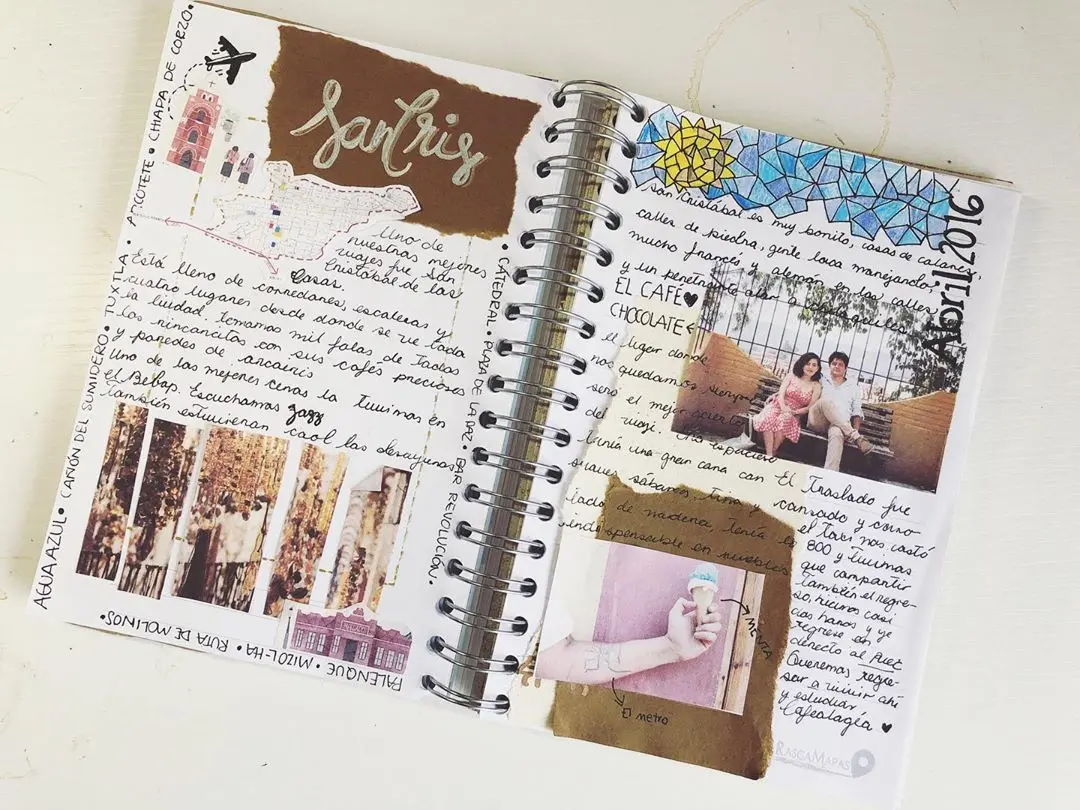 SanCris
AGUA AZUL • CAÑÓN DEL SUMIDERO • TUXTLA • ARCOTETE • CHIAPA DE CORZO •
Uno de
nuestros mejores
viajes fue San
Cristóbal de las
Casas.
Está lleno de corredores, escaleras y
cuatro lugares desde donde se ve toda
la ciudad. Tomamos mil fotos de todos
los rinconcitos con sus cafés preciosos
y paredes de
Uno de las mejores cenas la tuvimos en
el Bebop. Escuchamos jazz
también estuvieron cool los desayunos
• CATEDRAL • PLAZA DE LA PAZ • BAR REVOLUCIÓN •
PALENQUE • MIZOL-HA • RUTA DE MOLINOS •
Abril 2016
San Cristóbal es muy bonito, casas de colores,
calles de piedra, gente loca manejando,
mucho francés y alemán en las calles
y un penetrante olor a
EL CAFÉ ♥
CHOCOLATE
el lugar donde
nos quedamos, siempre
será el mejor
del viaje. Un espacioso
tenía una gran cama con
suaves sábanas, tina y
lado de madera, tenía lo
indispensable en muebles
MENTA
El metro
El Traslado fue
cansado y como
el taxi nos costó
800 y tuvimos
que compartir
también el regre-
so, hicimos casi
dos horas y ya
regresé en el
directo al Puet
Queremos regre-
sar a vivir ahí
y estudiar
Cafealogía ♥
RASCAMAPAS